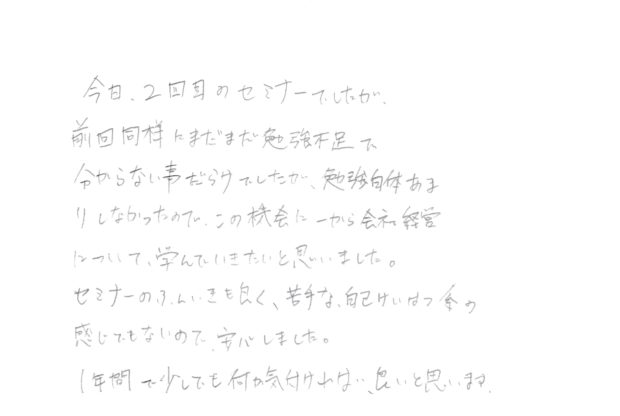 今日、2回目のセミナーでしたが、
前回同様にまだまだ勉強不足で
分からない事だらけでしたが、勉強自体あま
りしなかったので、この機会に一から会社経営
について、学んでいきたいと思いました。
セミナーのふんいきも良く、苦手な、自己けいはつ系の
感じでもないので、安心しました。
1年間で少しでも何か気付ければ、良いと思います。